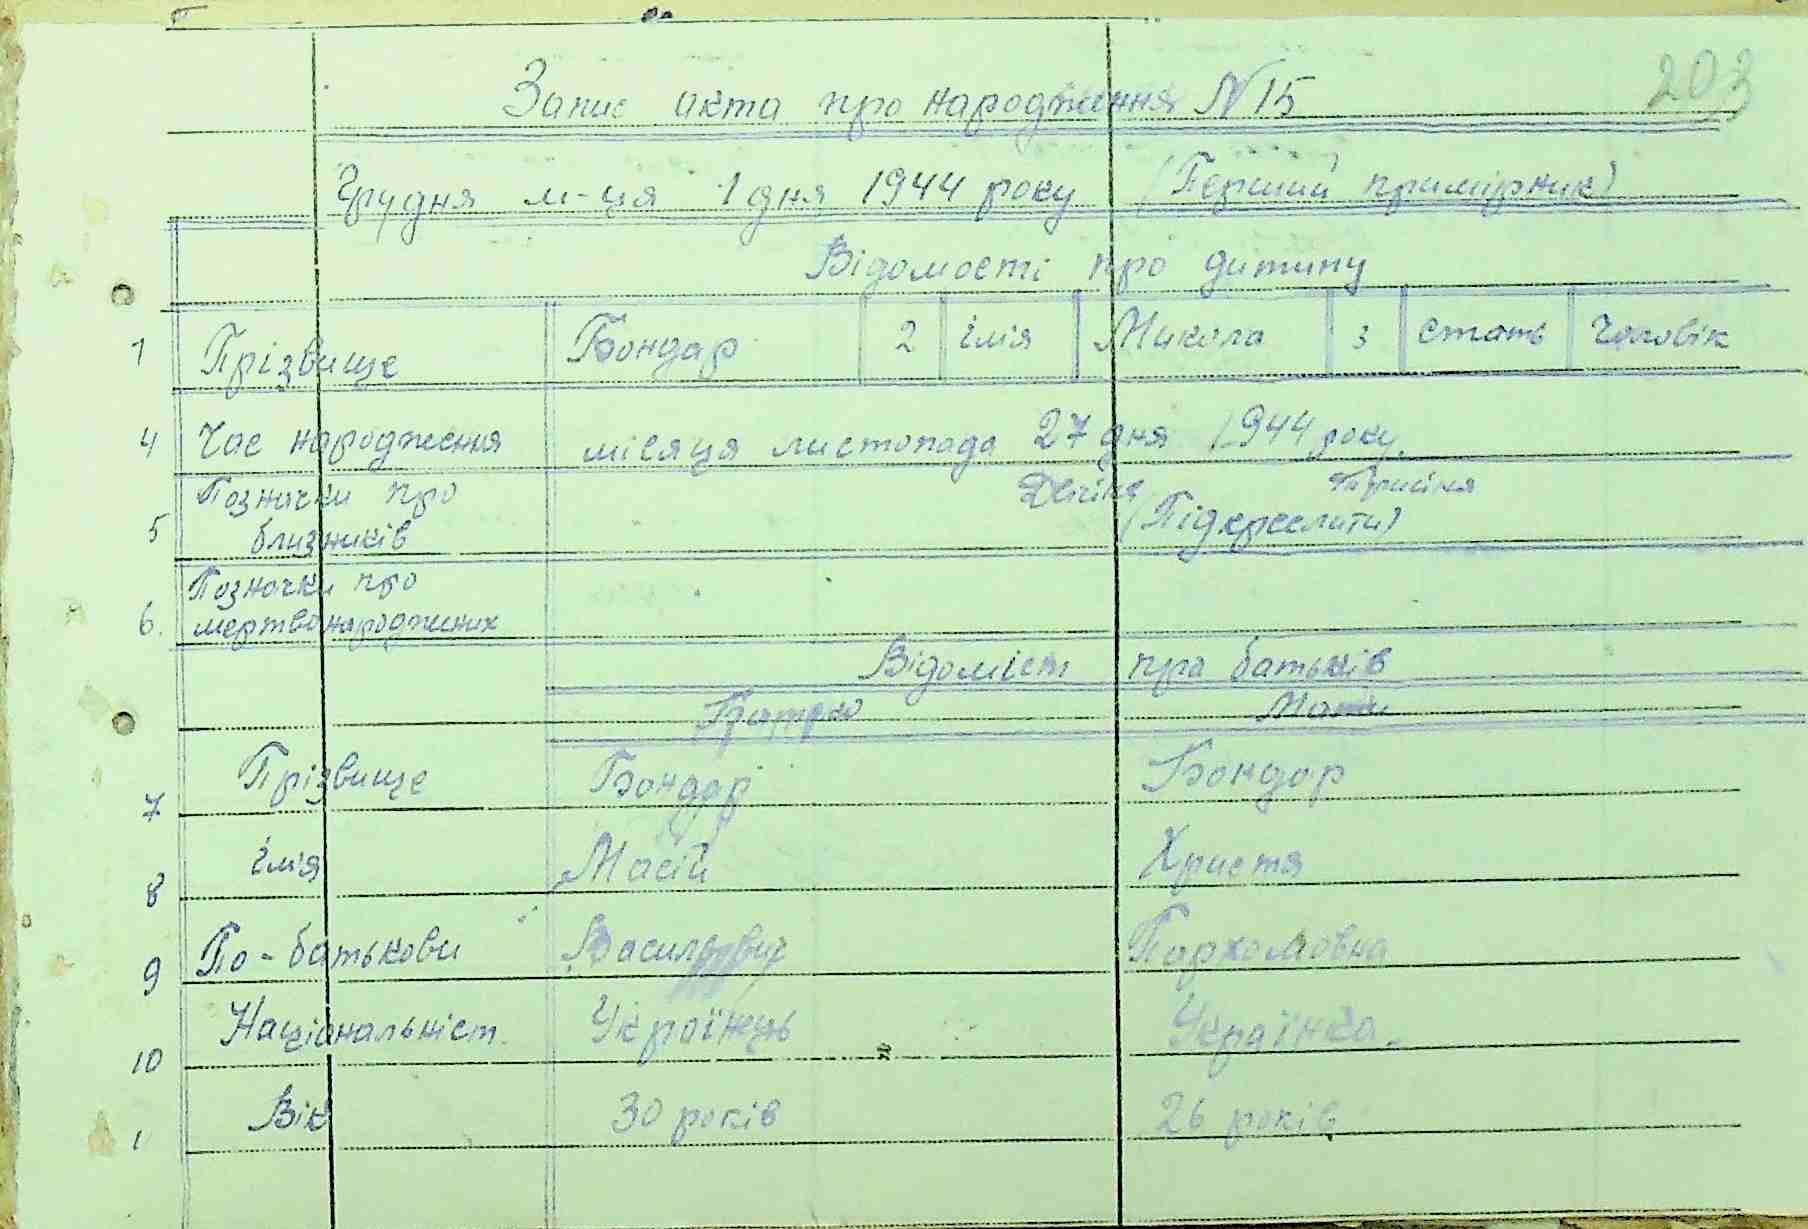 203
Запис акта про народження №15
Грудня м-ця 1 дня 1944 року (Перший примірник)
Відомості про дитину
1 Прізвище Бондар 2 імія Микола 3 стать Чоловік
4 Час народження місяця листопада 27 дня 1944 року.
Позначки про Двійня Трийня
5 близників (Підкреслити)
Позначки про
6. мертвонароджених
Відоміст про батьків
Батько Мати
7 Прізвище Бондар Бондар
8 імія Масій Христя
9 По-батькови Василович Пархомовна
10 Національніст. Українець Українка.
1 Вік 30 років 26 років